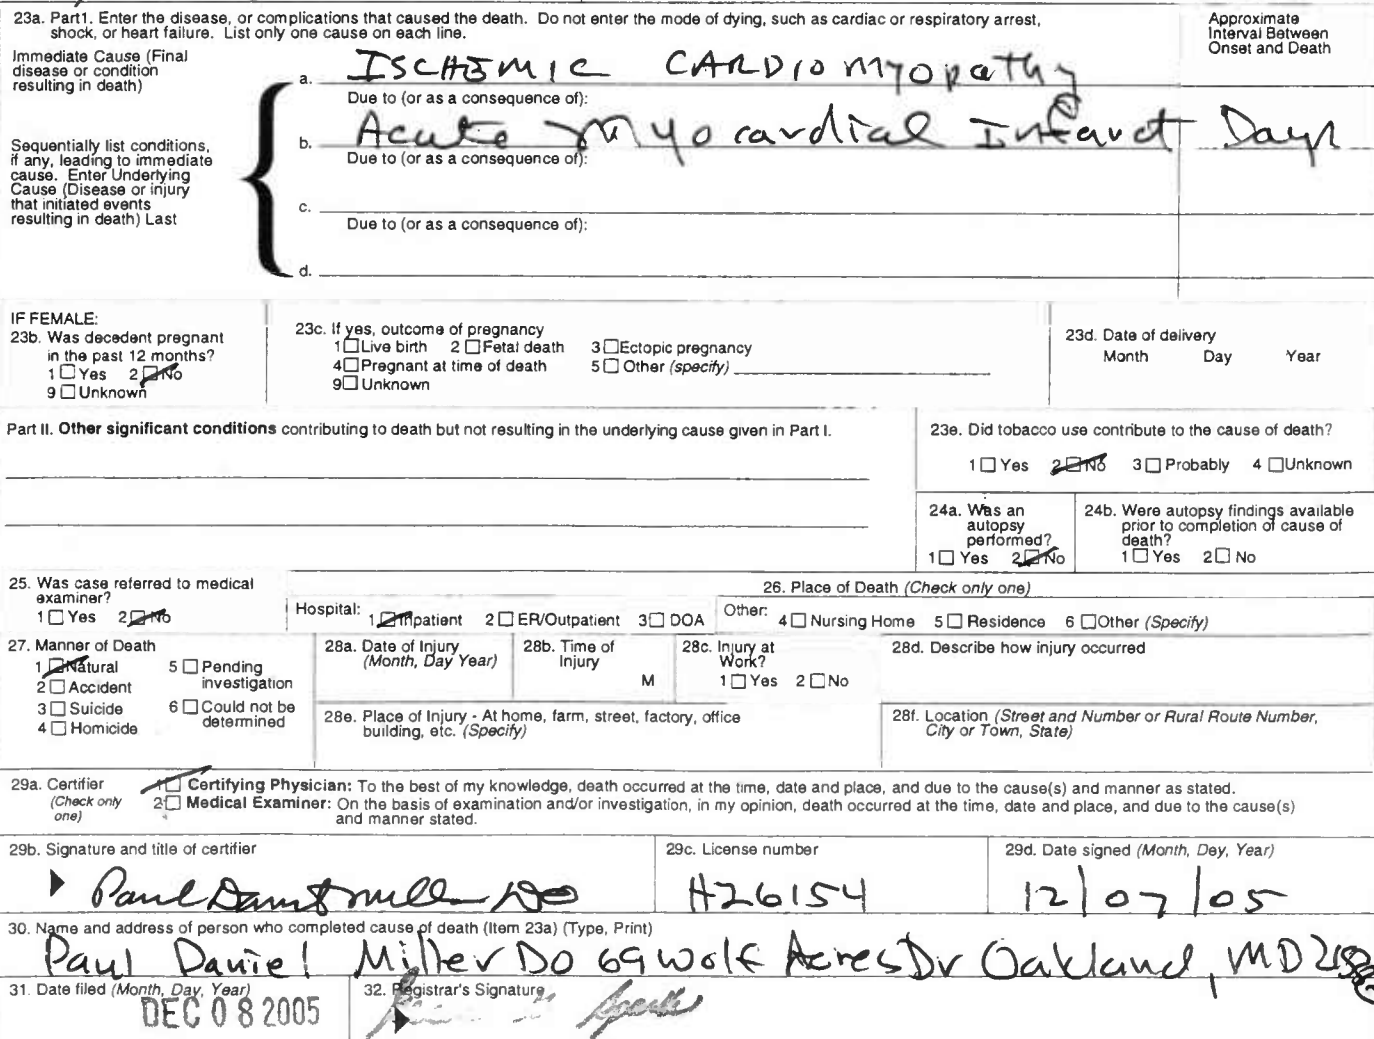 23a. Part1. Enter the disease, or complications that caused the death. Do not enter the mode of dying, such as cardiac or respiratory arrest,
shock, or heart failure. List only one cause on each line.
Approximate
Interval Between
Onset and Death
Immediate Cause (Final
disease or condition
resulting in death)
a. ISCHEMIC CARDIOMYOPATHY
Due to (or as a consequence of):
Sequentially list conditions,
if any, leading to immediate
cause. Enter Underlying
Cause (Disease or injury
that initiated events
resulting in death) Last
b. Acute Myocardial Infarct Days
Due to (or as a consequence of):
c.
Due to (or as a consequence of):
d.
IF FEMALE:
23b. Was decedent pregnant
in the past 12 months?
1 ☐ Yes 2 ☑ No
9 ☐ Unknown
23c. If yes, outcome of pregnancy
1 ☐ Live birth 2 ☐ Fetal death 3 ☐ Ectopic pregnancy
4 ☐ Pregnant at time of death 5 ☐ Other (specify)
9 ☐ Unknown
23d. Date of delivery
Month Day Year
Part II. Other significant conditions contributing to death but not resulting in the underlying cause given in Part I.
23e. Did tobacco use contribute to the cause of death?
1 ☐ Yes 2 ☑ No 3 ☐ Probably 4 ☐ Unknown
24a. Was an
autopsy
performed?
1 ☐ Yes 2 ☑ No
24b. Were autopsy findings available
prior to completion of cause of
death?
1 ☐ Yes 2 ☐ No
25. Was case referred to medical
examiner?
1 ☐ Yes 2 ☑ No
26. Place of Death (Check only one)
Hospital: 1 ☑ Inpatient 2 ☐ ER/Outpatient 3 ☐ DOA
Other: 4 ☐ Nursing Home 5 ☐ Residence 6 ☐ Other (Specify)
27. Manner of Death
1 ☑ Natural 5 ☐ Pending
investigation
2 ☐ Accident
3 ☐ Suicide 6 ☐ Could not be
determined
4 ☐ Homicide
28a. Date of Injury
(Month, Day Year)
28b. Time of
Injury
M
28c. Injury at
Work?
1 ☐ Yes 2 ☐ No
28d. Describe how injury occurred
28e. Place of Injury - At home, farm, street, factory, office
building, etc. (Specify)
28f. Location (Street and Number or Rural Route Number,
City or Town, State)
29a. Certifier
(Check only
one)
1 ☑ Certifying Physician: To the best of my knowledge, death occurred at the time, date and place, and due to the cause(s) and manner as stated.
2 ☐ Medical Examiner: On the basis of examination and/or investigation, in my opinion, death occurred at the time, date and place, and due to the cause(s)
and manner stated.
29b. Signature and title of certifier
Paul Daniel Miller DO
29c. License number
H26154
29d. Date signed (Month, Day, Year)
12/07/05
30. Name and address of person who completed cause of death (Item 23a) (Type, Print)
Paul Daniel Miller DO 69 Wolf Acres Dr Oakland, MD
31. Date filed (Month, Day, Year)
DEC 08 2005
32. Registrar's Signature